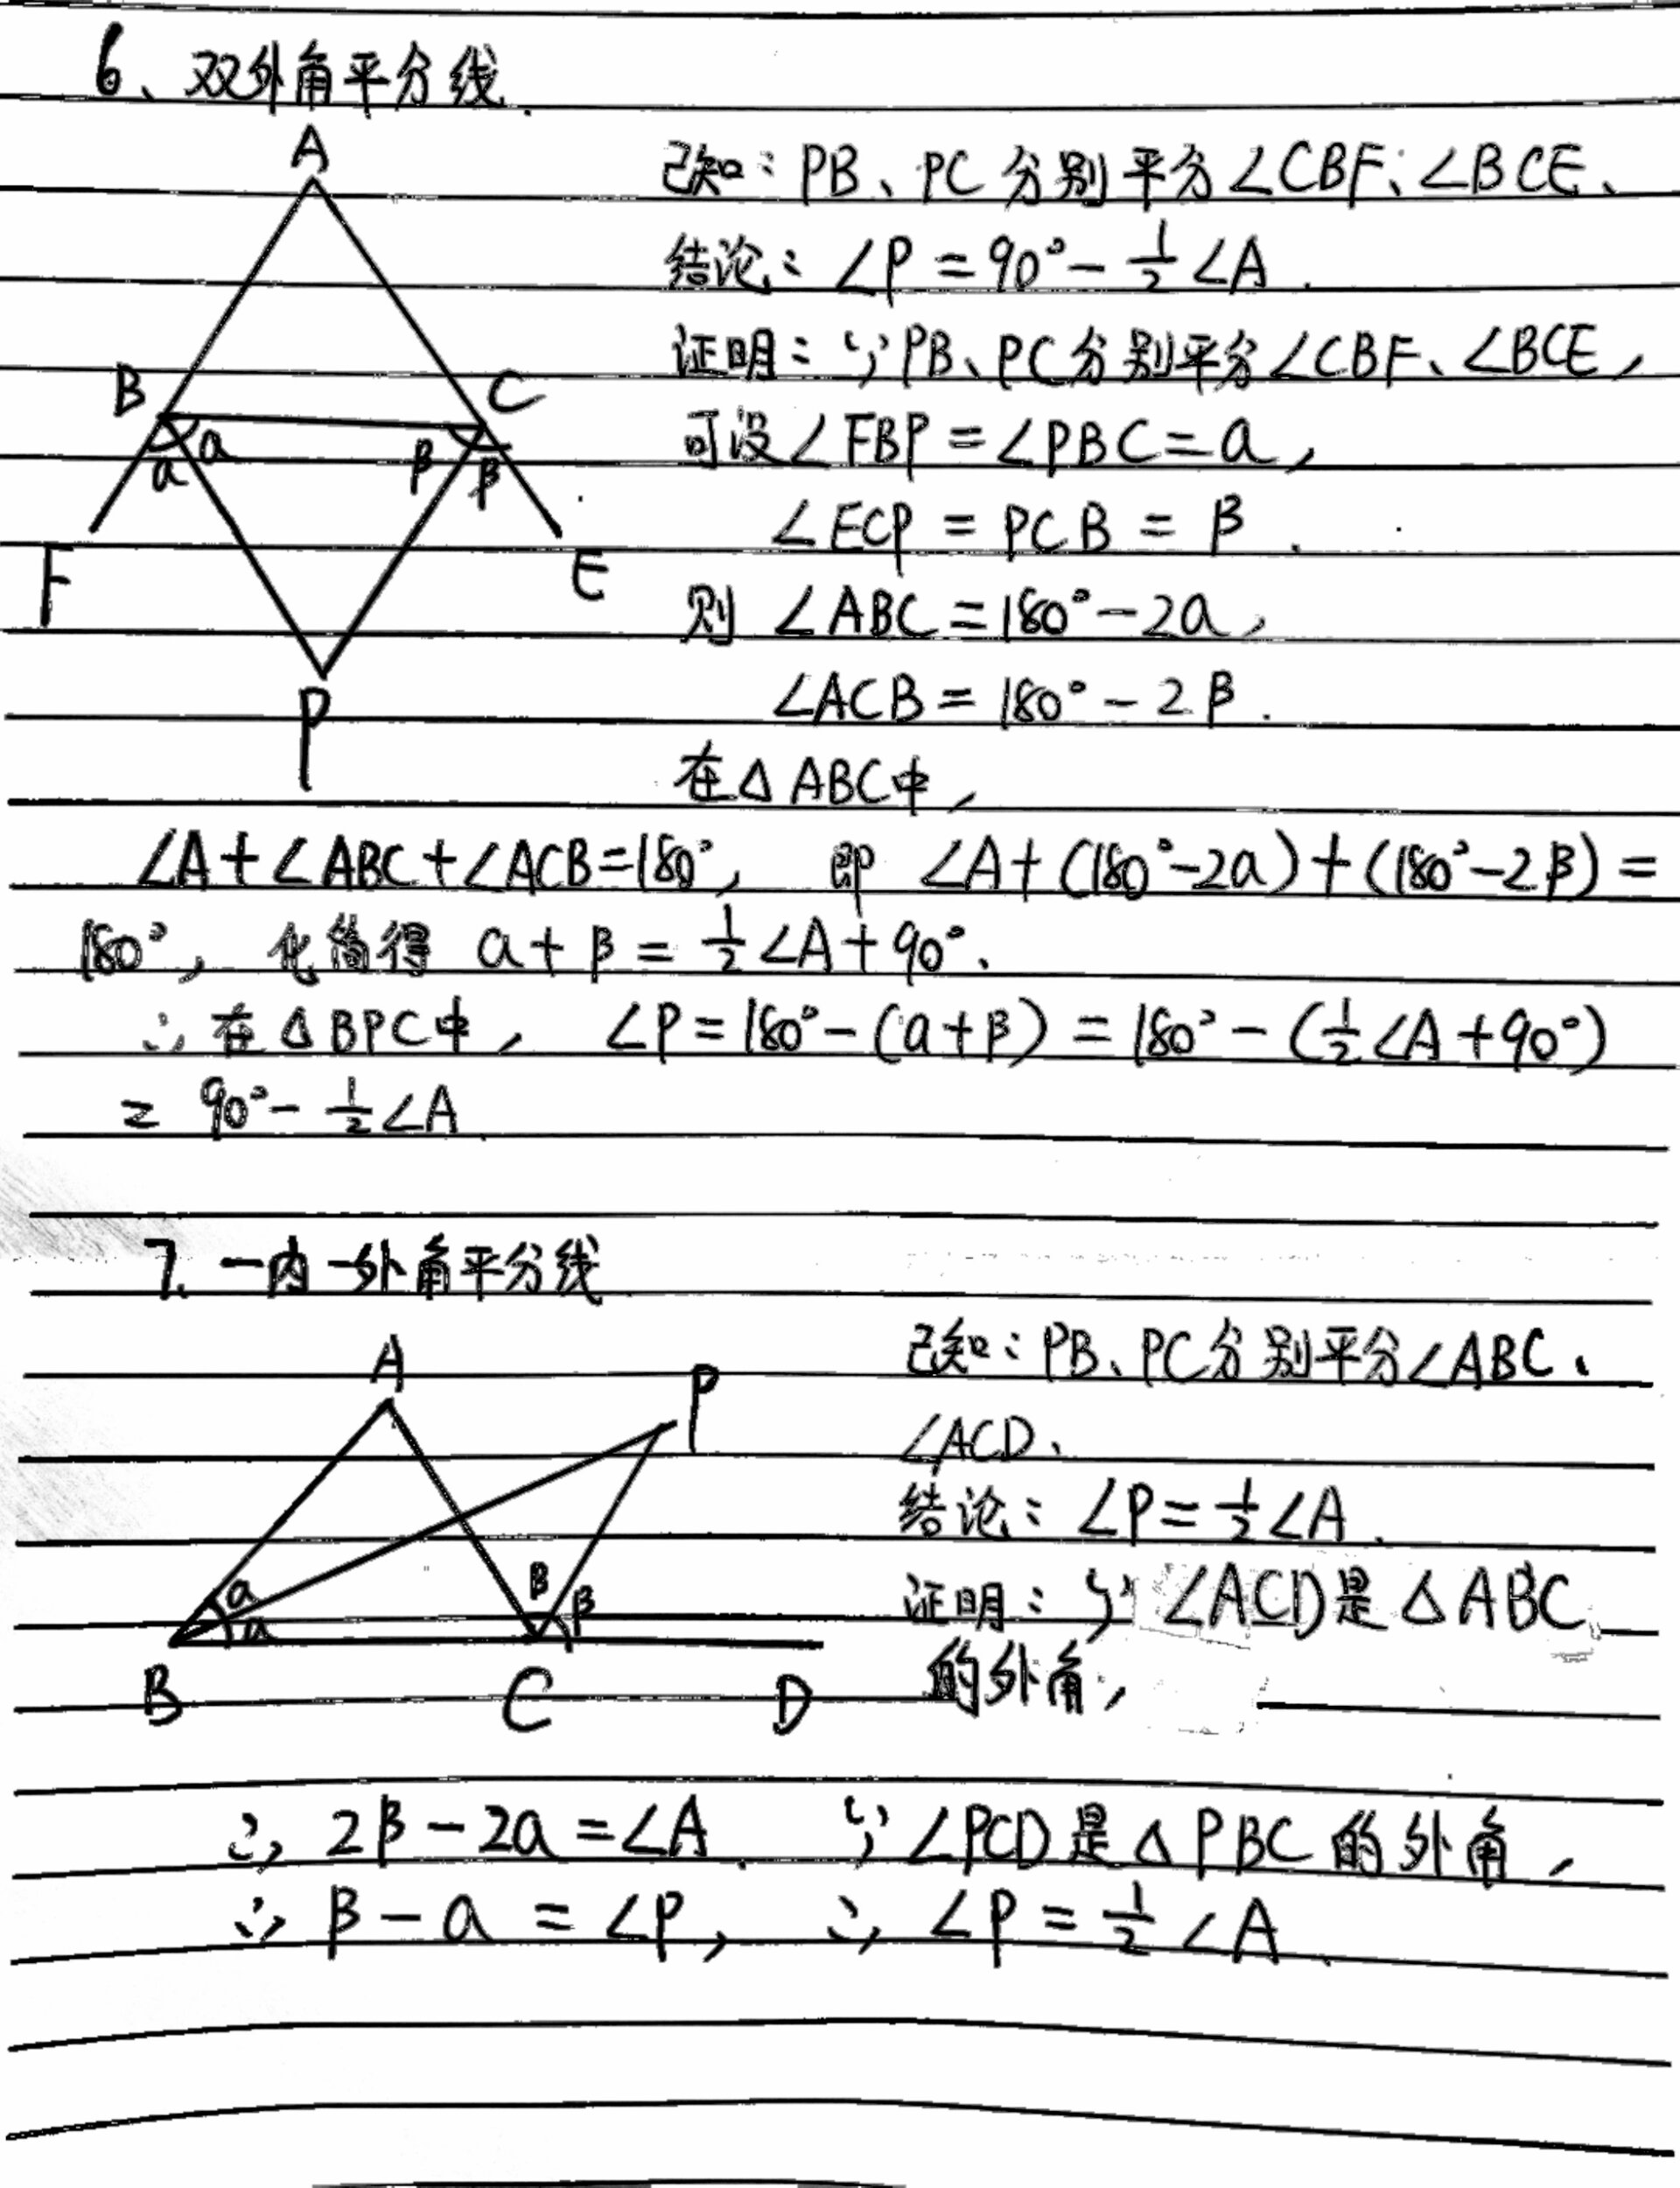 6、双外角平分线.
A
已知：PB、PC 分别平分∠CBF、∠BCE、
结论：∠P = 90° - 1/2 ∠A .
证明：∵PB、PC分别平分∠CBF、∠BCE,
B C
可设∠FBP = ∠PBC = a,
a a β β
∠ECP = PCB = β .
F E
则 ∠ABC = 180° - 2a,
∠ACB = 180° - 2β .
P
在△ABC中,
∠A + ∠ABC + ∠ACB = 180°, 即 ∠A + (180° - 2a) + (180° - 2β) =
180°, 化简得 a + β = 1/2 ∠A + 90°.
∴在△BPC中, ∠P = 180° - (a + β) = 180° - (1/2 ∠A + 90°)
= 90° - 1/2 ∠A
7. 一内一外角平分线
A P
已知：PB、PC分别平分∠ABC、
∠ACD、
结论：∠P = 1/2 ∠A .
a a β β
证明：∵ ∠ACD是△ABC
的外角,
B C D
∴ 2β - 2a = ∠A . ∵∠PCD是△PBC的外角,
∴ β - a = ∠P, ∴ ∠P = 1/2 ∠A .